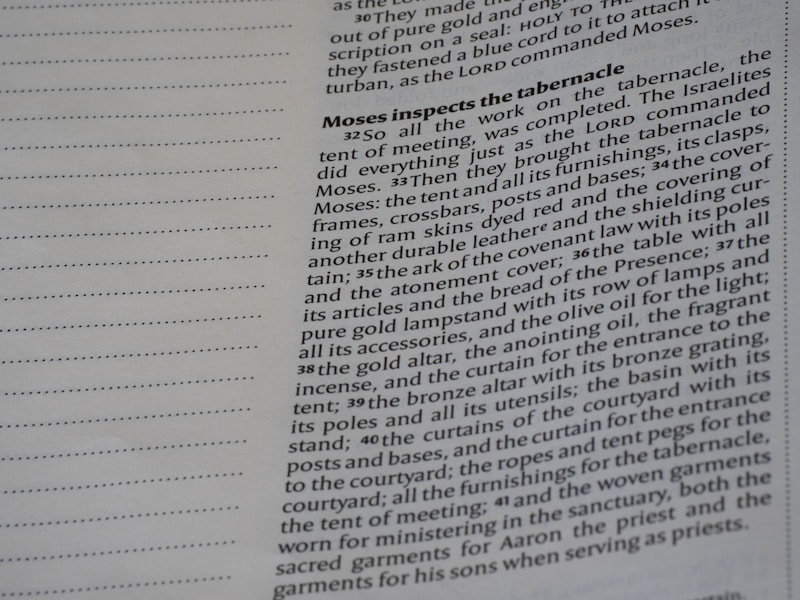 as the LORD
³⁰They made the
out of pure gold and eng
scription on a seal: HOLY TO THE
they fastened a blue cord to it to attach it
turban, as the LORD commanded Moses.
Moses inspects the tabernacle
³²So all the work on the tabernacle, the
tent of meeting, was completed. The Israelites
did everything just as the LORD commanded
Moses. ³³Then they brought the tabernacle to
Moses: the tent and all its furnishings, its clasps,
frames, crossbars, posts and bases; ³⁴the cover-
ing of ram skins dyed red and the covering of
another durable leatherᵉ and the shielding cur-
tain; ³⁵the ark of the covenant law with its poles
and the atonement cover; ³⁶the table with all
its articles and the bread of the Presence; ³⁷the
pure gold lampstand with its row of lamps and
all its accessories, and the olive oil for the light;
³⁸the gold altar, the anointing oil, the fragrant
incense, and the curtain for the entrance to the
tent; ³⁹the bronze altar with its bronze grating,
its poles and all its utensils; the basin with its
stand; ⁴⁰the curtains of the courtyard with its
posts and bases, and the curtain for the entrance
to the courtyard; the ropes and tent pegs for the
courtyard; all the furnishings for the tabernacle,
the tent of meeting; ⁴¹and the woven garments
worn for ministering in the sanctuary, both the
sacred garments for Aaron the priest and the
garments for his sons when serving as priests.